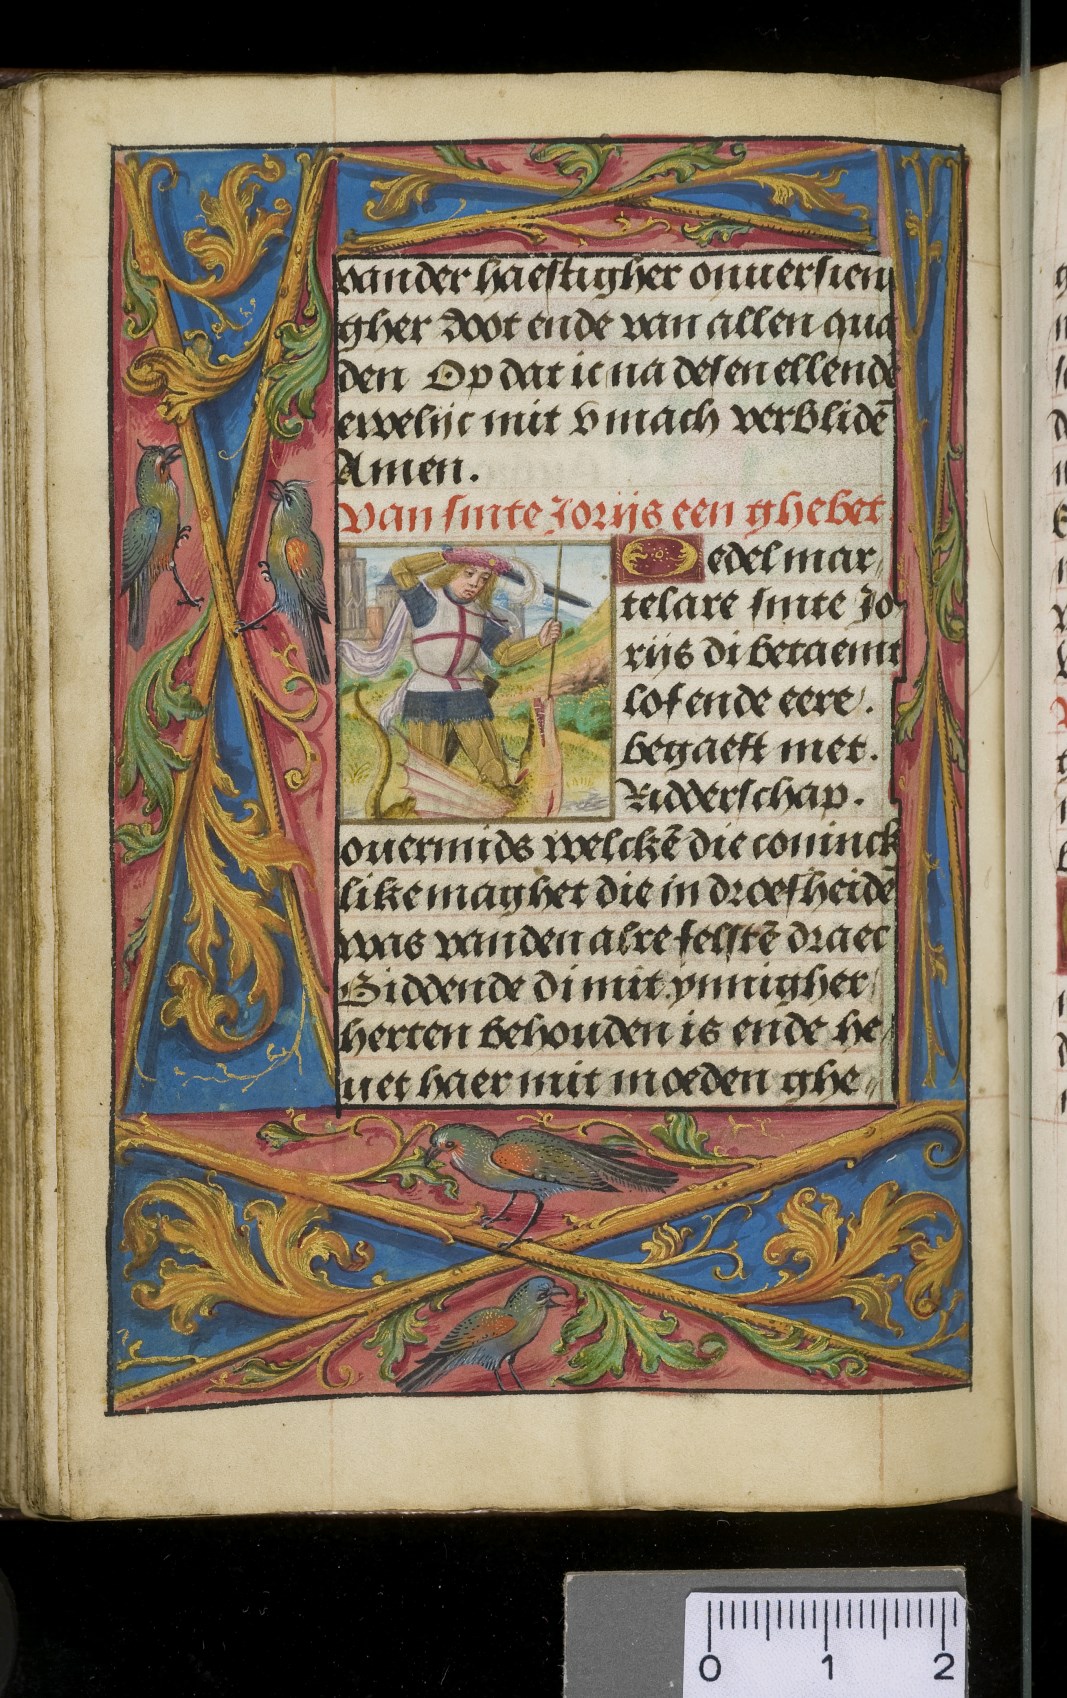 van der haestigher onuersien
gher doot ende van allen qua
den Op dat ic na desen ellende
ewelijc mit v mach verblidē
Amen.
Van sinte Jorijs een ghebet
O edel mar
telare sinte Jo
rijs di betaemt
lof ende eere.
begaeft met.
Ridderschap.
ouermids welckē die coninck
like maghet die in droefheidē
was van den alre felstē draec
Biddende di mit ynnigher
herten behouden is ende he
uet haer mit moeden ghe〃
0 1 2